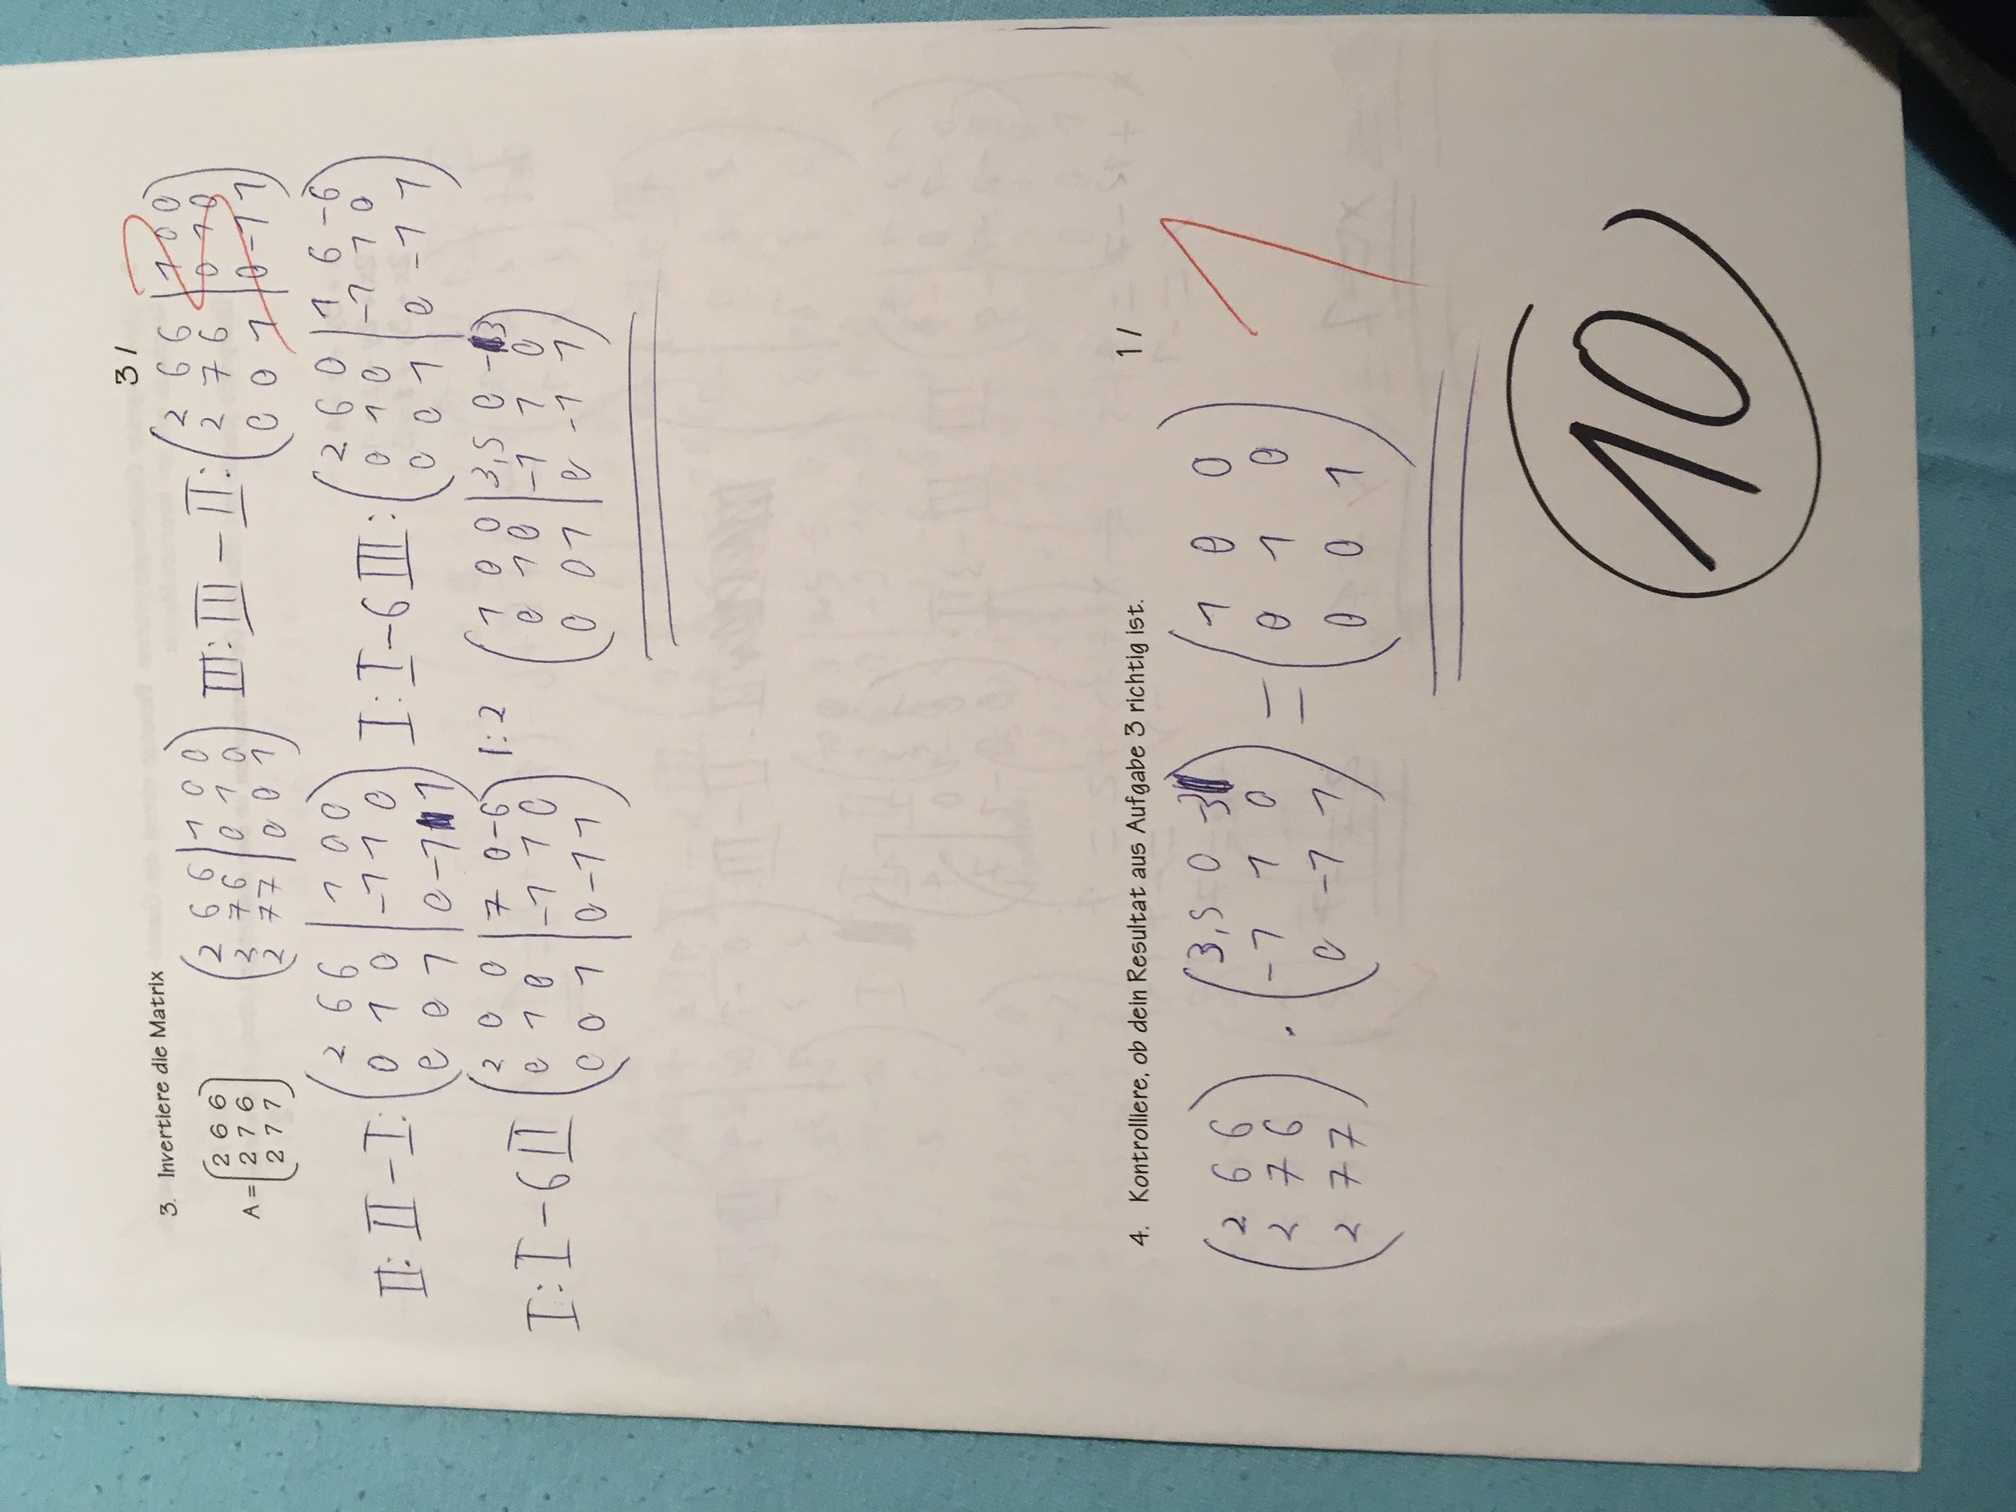 3 /
3. Invertiere die Matrix 3
A = (2 6 6
2 7 6
2 7 7)
(2 6 6 | 1 0 0
2 7 6 | 0 1 0
2 7 7 | 0 0 1)
III: III - II: (2 6 6 | 1 0 0
2 7 6 | 0 1 0
0 0 1 | 0 -1 1)
II: II - I: (2 6 6 | 1 0 0
0 1 0 | -1 1 0
0 0 1 | 0 -1 1)
I: I - 6 III: (2 6 0 | 1 6 -6
0 1 0 | -1 1 0
0 0 1 | 0 -1 1)
I: I - 6 II (2 0 0 | 7 0 -6
0 1 0 | -1 1 0
0 0 1 | 0 -1 1) | : 2
(1 0 0 | 3,5 0 -3
0 1 0 | -1 1 0
0 0 1 | 0 -1 1)
4. Kontrolliere, ob dein Resultat aus Aufgabe 3 richtig ist. 1 / 1
(2 6 6
2 7 6
2 7 7)
·
(3,5 0 -3
-1 1 0
0 -1 1)
=
(1 0 0
0 1 0
0 0 1)
10